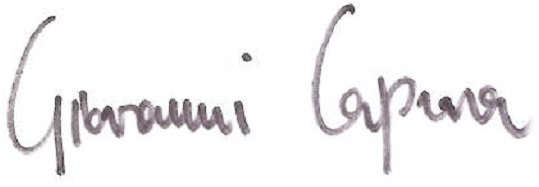 Giovanni Capina